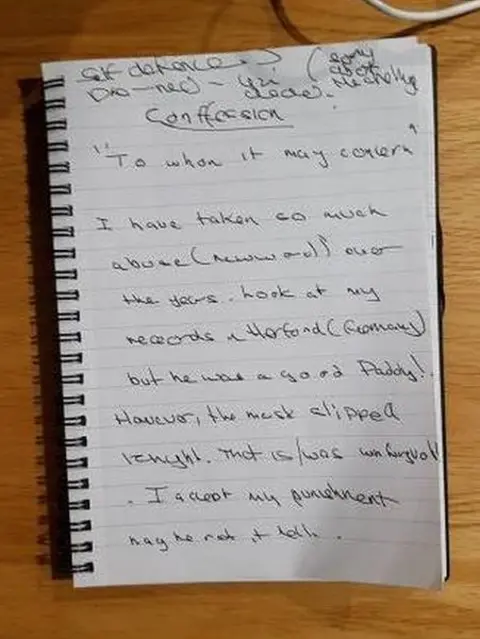 self defence. (sorry about
Do-ned - you decide. the spelling
Conffession
"To whom it may concern"
I have taken so much
abuse (new word) over
the years. Look at my
records in Herford (Germany)
but he was a good Daddy!
However, the mask slipped
tonight. That is/was unforgivabl
. I accept my punishment
may he rot in hell.